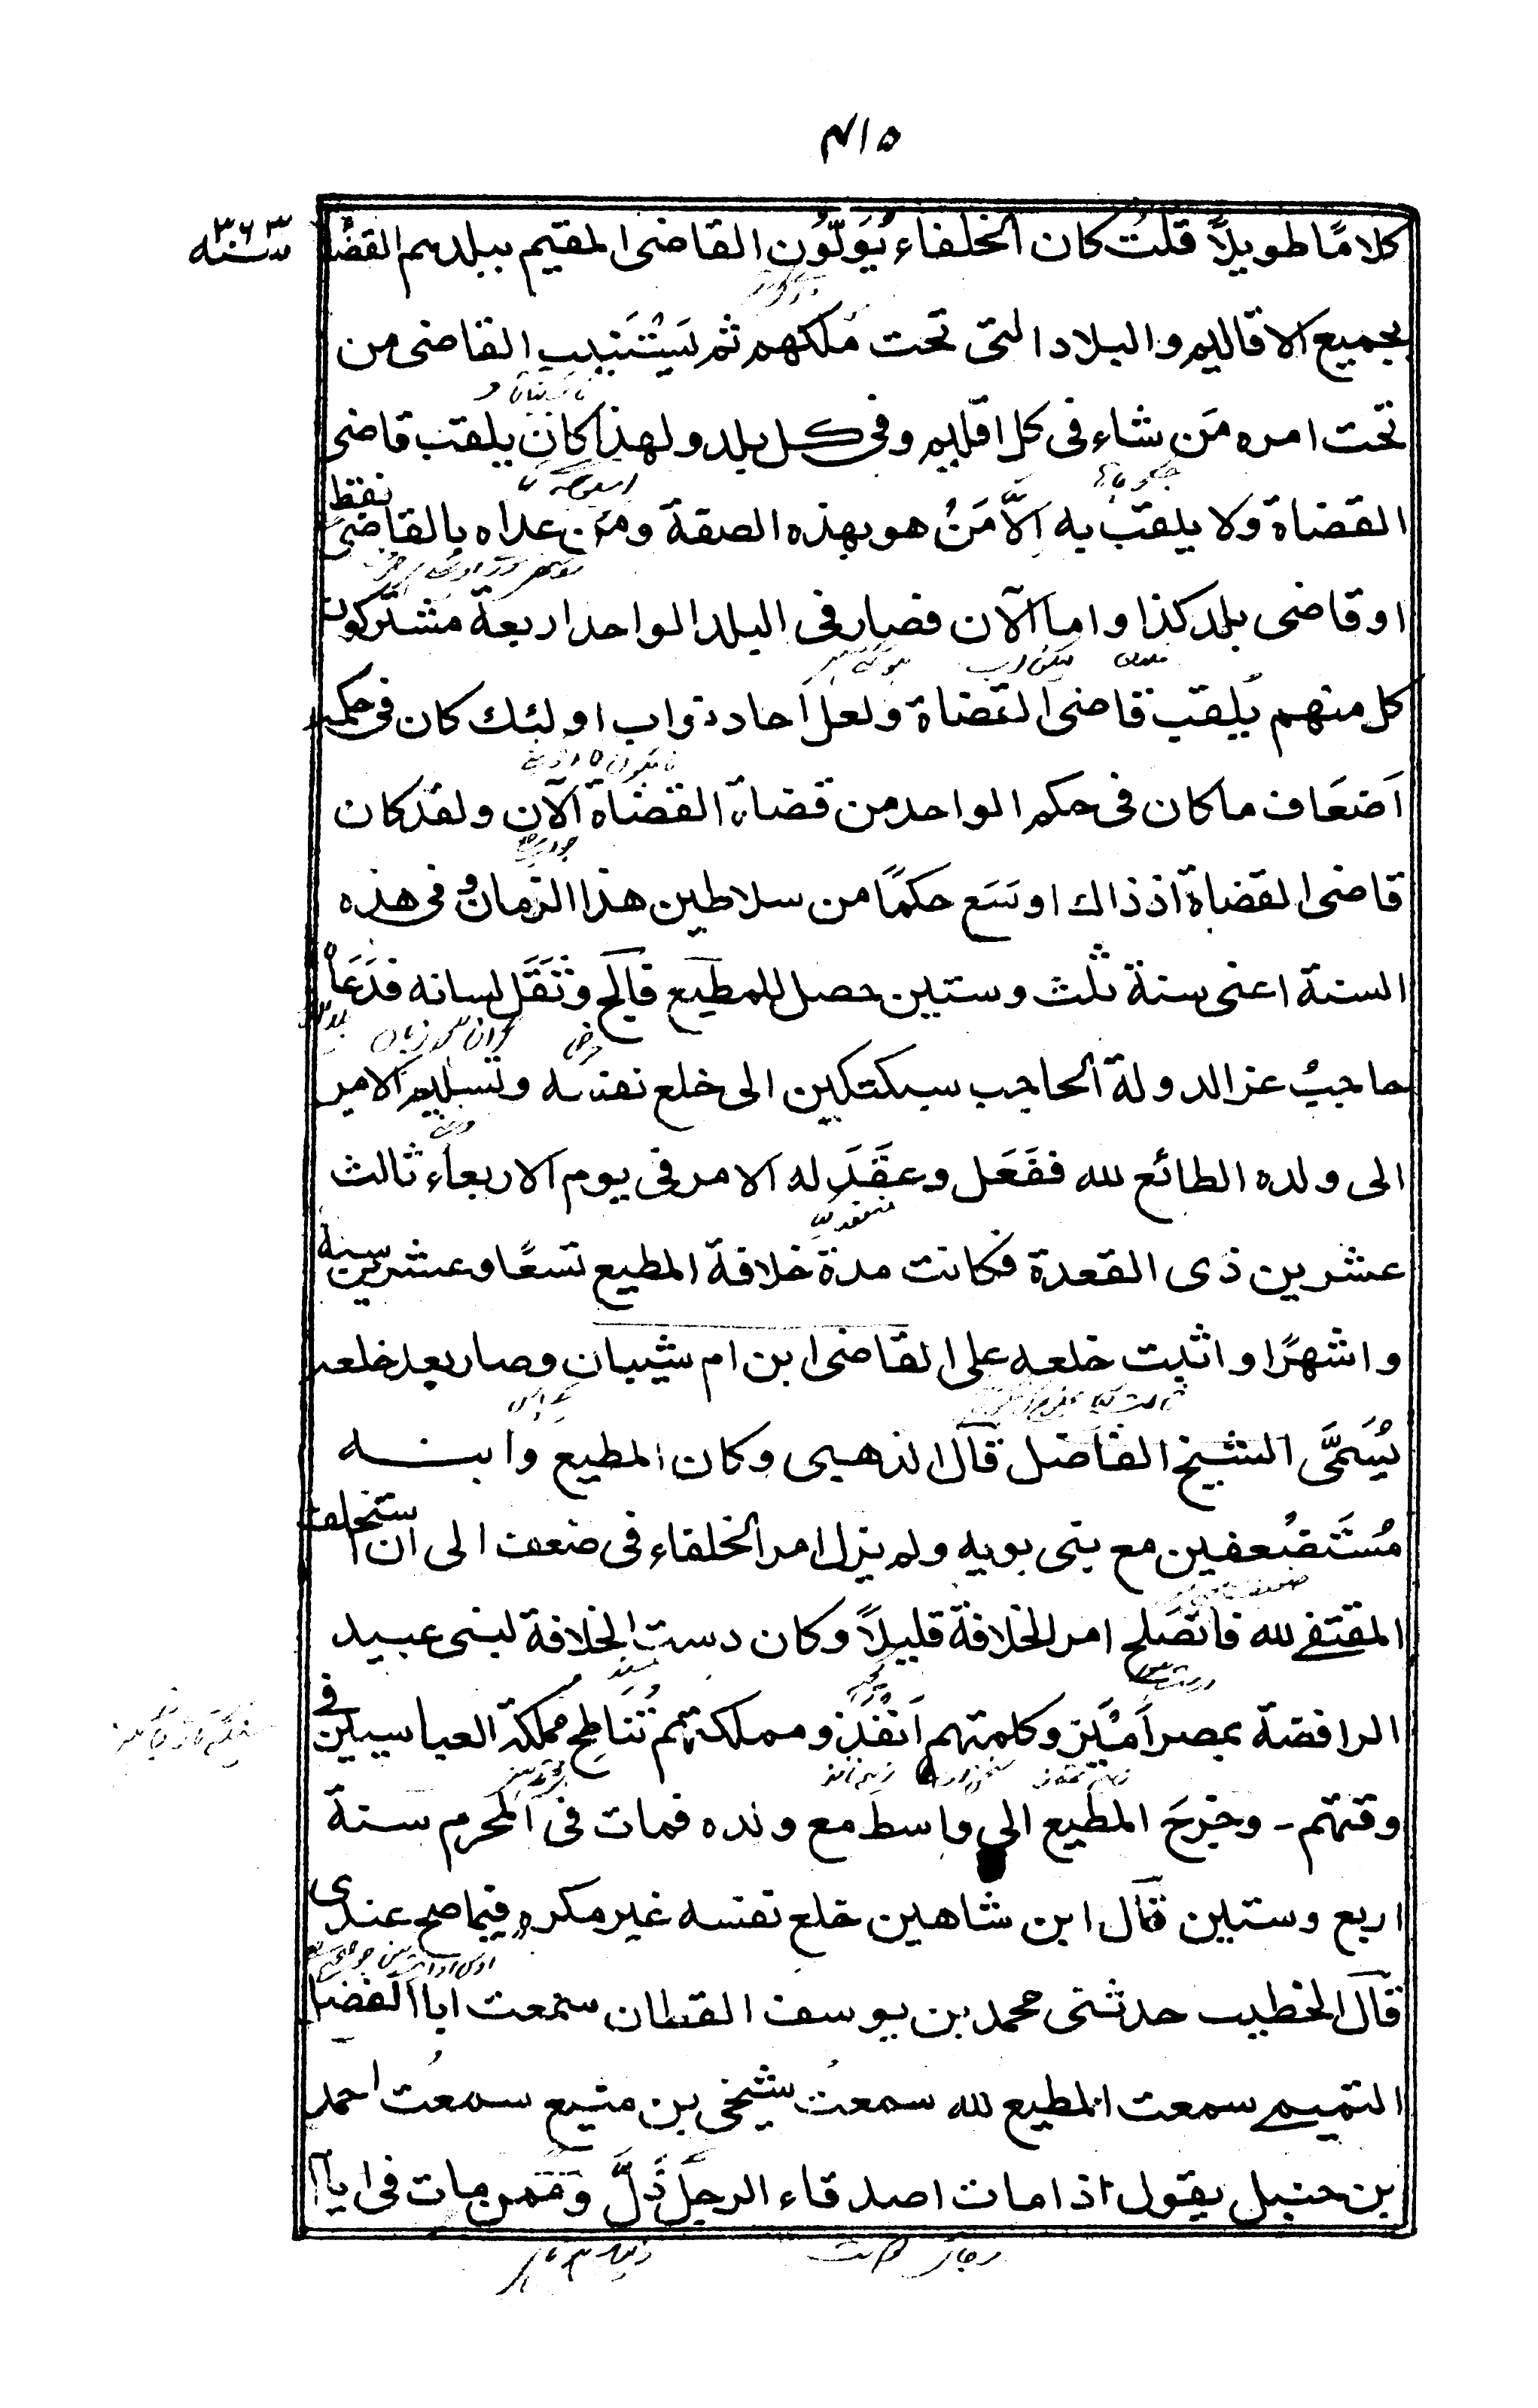 ۴۱۵
سنه ۳۶۳
كلامًا طويلًا قلتُ كان الخلفاء يُوَلّوُن القاضى المقيم ببلدهم القضا
بجميع الاقاليم والبلاد التى تحت ملكهم ثم يَسْتَنيب القاضى من
تحت امره مَن شاء فى كل اقليم وفى كل بلد ولهذا كان يلقب قاضى
القضاة ولا يلقب به اِلَّا مَنْ هو بهذه الصفة ومَن عداه بالقاضى فقط
او قاضى بلد كذا واما الآن فصار فى البلد الواحد اربعة مشتركون
كل منهم يُلقب قاضى القضاة ولعل آحاد نواب اولئك كان فى حكمه
اَضعَاف ما كان فى حكم الواحد من قضاة القضاة الآن ولقد كان
قاضى القضاة اذ ذاك اوسَع حكمًا من سلاطين هذا الزمان و فى هذه
السنة اعنى سنة ثلث وستين حصل للمطيع فالج وثَقَل لسانه فدَعَاه
حاجبُ عز الدولة الحاجب سبكتكين الى خلع نفسه وتسليم الامر
الى ولده الطائع لله ففَعَل وعقَدَ له الامر فى يوم الاربعاء ثالث
عشرين ذى القعدة فكانت مدة خلافة المطيع تسعًا وعشرين سنة
واشهرًا واثبت خلعه على القاضى ابن ام شيبان وصار بعد خلعه
يُسَمَّى الشيخ الفاضل قال الذهبى وكان المطيع وابنه
مُسْتَضْعفين مع بنى بويه ولم يزل امر الخلفاء فى ضعف الى ان استخلف
المقتفى لله فانصَلح امر الخلافة قليلًا وكان دست الخلافة لبنى عبيد
الرافضة بمصر اَميَز وكلمتهم اَنفُذ ومملكتهم تُنَاطح مملكة العباسيين فى
وقتهم ـ وخرجَ المطيع الى واسط مع ولده فمات فى المحرم سنة
اربع وستين قال ابن شاهين خلع نفسه غير مكره فيما صح عندى
قال الخطيب حدثنى محمد بن يوسف القطان سمعت ابا الفضل
التميمى سمعت المطيع لله سمعت شيخى بن منيع سمعت احمد
بن حنبل يقول اذا مات اصدقاء الرجل ذَلَّ وممن مات فى ايا